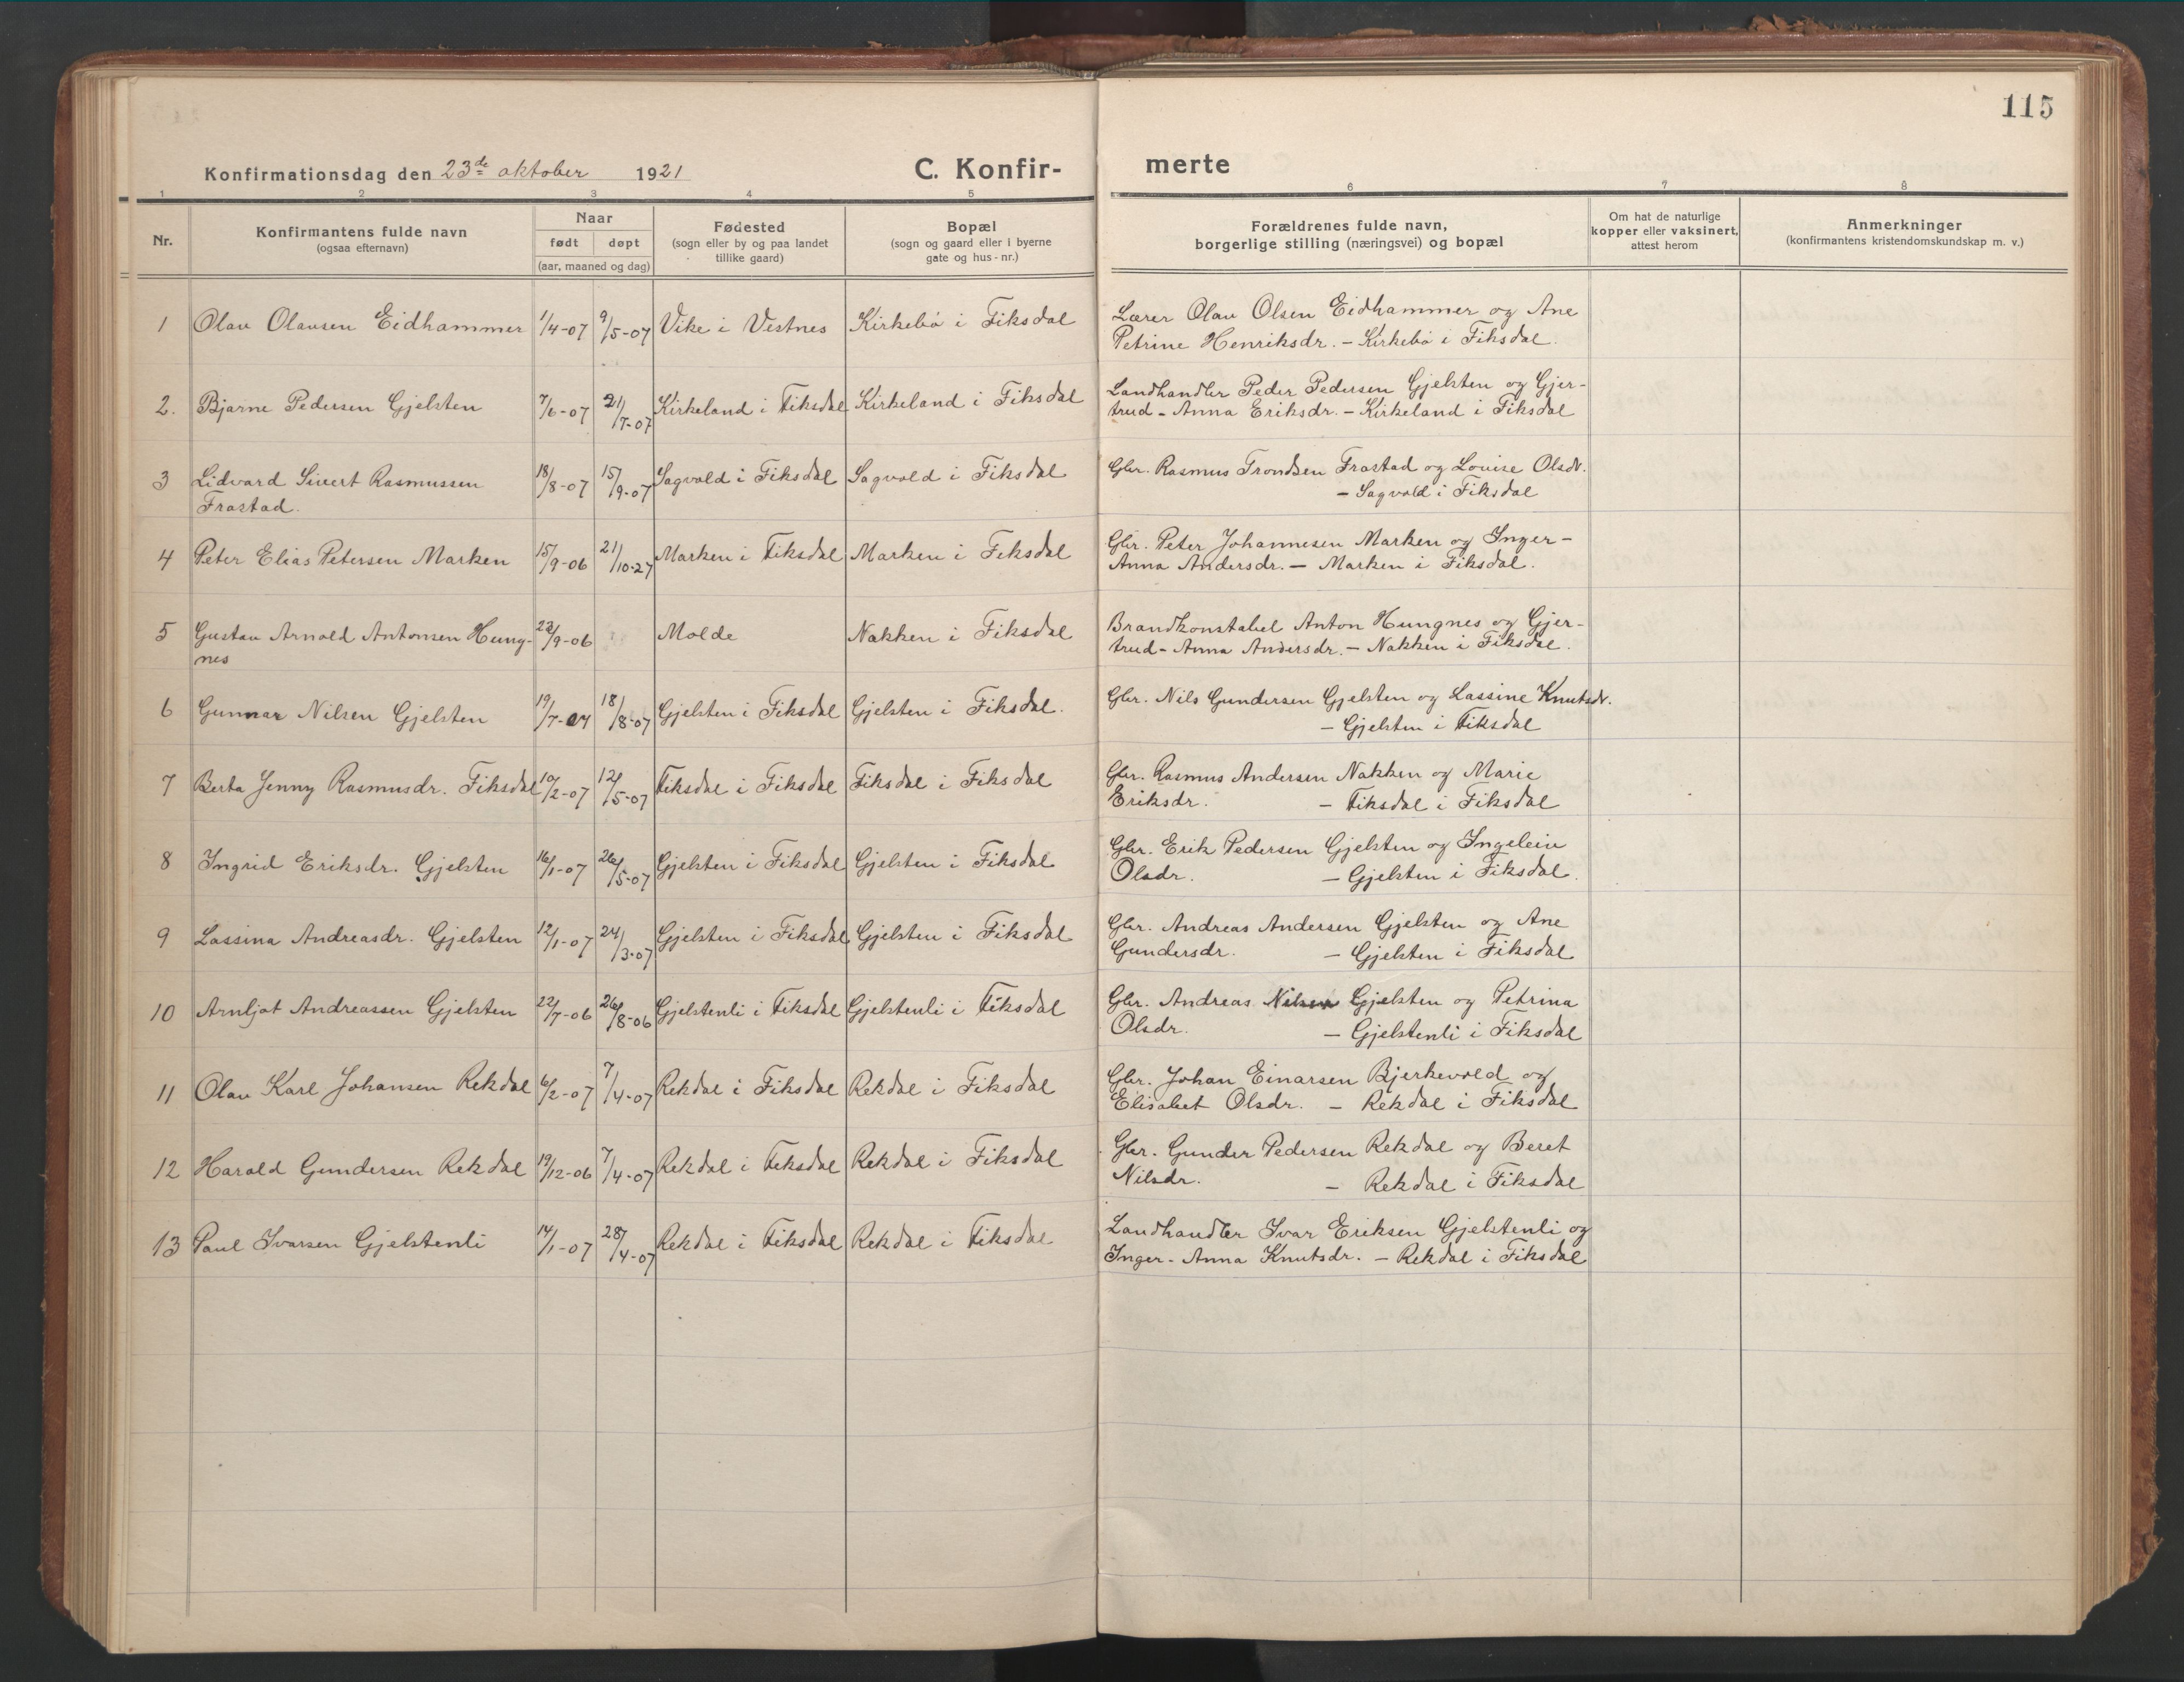 115
Konfirmationsdag den 23de oktober 1921 C. Konfir- merte
1 2 3 4 5 6 7 8
Nr. Konfirmantens fulde navn (ogsaa efternavn) Naar født døpt (aar, maaned og dag) Fødested (sogn eller by og paa landet tillike gaard) Bopæl (sogn og gaard eller i byerne gate og hus-nr.) Forældrenes fulde navn, borgerlige stilling (næringsvei) og bopæl Om hat de naturlige kopper eller vaksinert, attest herom Anmerkninger (konfirmantens kristendomskundskap m. v.)
1 Olav Olavsen Eidhammer 1/4-07 9/5-07 Vike i Vestnes Kirkebø i Fiksdal Lærer Olav Olsen Eidhammer og Ane
Petrine Henriksdr. - Kirkebø i Fiksdal.
2. Bjarne Pedersen Gjelsten 7/6-07 21/7-07 Kirkeland i Fiksdal Kirkeland i Fiksdal Landhandler Peder Pedersen Gjelsten og Gjer-
trud-Anna Eriksdr. - Kirkeland i Fiksdal
3 Lidvard Sivert Rasmussen 18/8-07 15/9-07 Sagvold i Fiksdal Sagvold i Fiksdal Gbr. Rasmus Trondsen Frastad og Louise Olsdr.
Frastad. - Sagvold i Fiksdal
4 Peter Elias Petersen Marken 15/9-06 21/10-27 Marken i Fiksdal Marken i Fiksdal Gbr. Peter Johannesen Marken og Inger-
Anna Andersdr. - Marken i Fiksdal.
5 Gustav Arnold Antonsen Hung- 23/9-06 Molde Nakken i Fiksdal Brandkonstabel Anton Hungnes og Gjer-
nes trud-Anna Andersdr. - Nakken i Fiksdal.
6 Gunnar Nilsen Gjelsten 19/7-07 18/8-07 Gjelsten i Fiksdal Gjelsten i Fiksdal. Gbr. Nils Gundersen Gjelsten og Lassine Knutsdr.
- Gjelsten i Fiksdal
7 Berta Jenny Rasmusdr. Fiksdal 10/2-07 12/5-07 Fiksdal i Fiksdal Fiksdal i Fiksdal Gbr. Rasmus Andersen Nakken og Marie
Eriksdr. - Fiksdal i Fiksdal
8 Ingrid Eriksdr. Gjelsten 16/1-07 26/5-07 Gjelsten i Fiksdal Gjelsten i Fiksdal Gbr. Erik Pedersen Gjelsten og Ingelein
Olsdr. - Gjelsten i Fiksdal.
9 Lassina Andreasdr. Gjelsten 12/1-07 24/3-07 Gjelsten i Fiksdal Gjelsten i Fiksdal Gbr. Andreas Andersen Gjelsten og Ane
Gundersdr. - Gjelsten i Fiksdal
10 Arnljot Andreassen Gjelsten 22/7-06 26/8-06 Gjelstenli i Fiksdal Gjelstenli i Fiksdal Gbr. Andreas Nilsen Gjelsten og Petrina
Olsdr. - Gjelstenli i Fiksdal
11 Olav Karl Johansen Rekdal 6/2-07 7/4-07 Rekdal i Fiksdal Rekdal i Fiksdal Gbr. Johan Einarsen Bjerkevold og
Elisabet Olsdr. - Rekdal i Fiksdal
12 Harald Gundersen Rekdal 19/12-06 7/4-07 Rekdal i Fiksdal Rekdal i Fiksdal Gbr. Gunder Pedersen Rekdal og Beret
Nilsdr. - Rekdal i Fiksdal
13 Paul Ivarsen Gjelstenli 14/1-07 28/4-07 Rekdal i Fiksdal Rekdal i Fiksdal Landhandler Ivar Eriksen Gjelstenli og
Inger-Anna Knutsdr. - Rekdal i Fiksdal